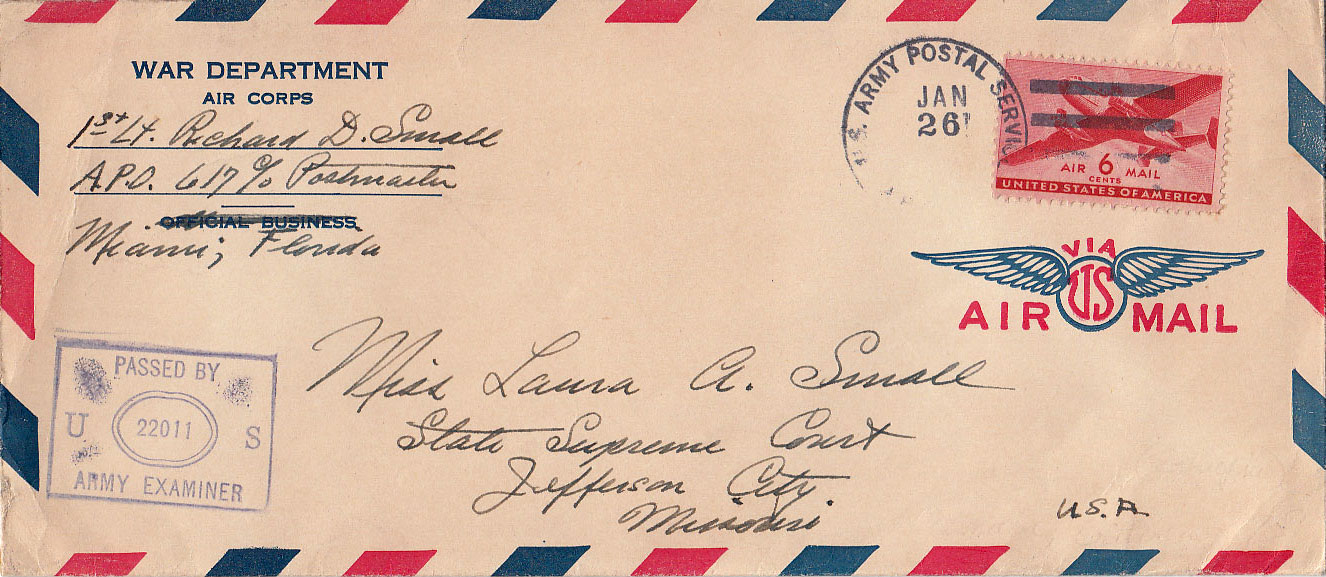 WAR DEPARTMENT
AIR CORPS
1st Lt. Richard D. Small
A.P.O. 617 c/o Postmaster
OFFICIAL BUSINESS
Miami, Florida
U.S. ARMY POSTAL SERVI
JAN
26
AIR 6 MAIL
CENTS
UNITED STATES OF AMERICA
VIA
AIR US MAIL
PASSED BY
U 22011 S
ARMY EXAMINER
Miss Laura A. Small
State Supreme Court
Jefferson City
Missouri
U.S.A